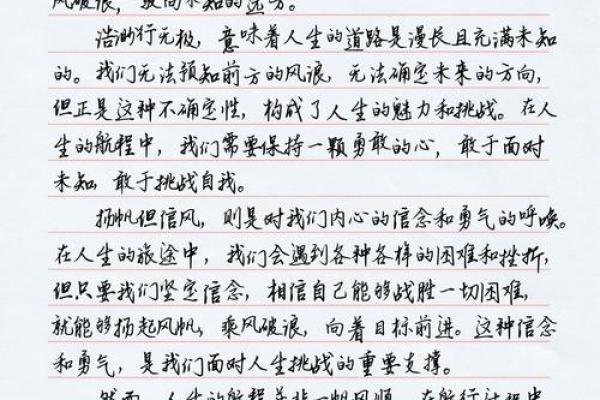 风破浪，驶向未知的远方。
浩渺行无极，意味着人生的道路是漫长且充满未知
的。我们无法预知前方的风浪，无法确定未来的方向，
但正是这种不确定性，构成了人生的魅力和挑战。在人
生的航程中，我们需要保持一颗勇敢的心，敢于面对
未知，敢于挑战自我。
扬帆但信风，则是对我们内心的信念和勇气的呼唤。
在人生的旅途中，我们会遇到各种各样的困难和挫折，
但只要我们坚定信念，相信自己能够战胜一切困难，
就能够扬起风帆，乘风破浪，向着目标前进。这种信念
和勇气，是我们面对人生挑战的重要支撑。
然而，人生的航程并非一帆风顺，在航行过程中